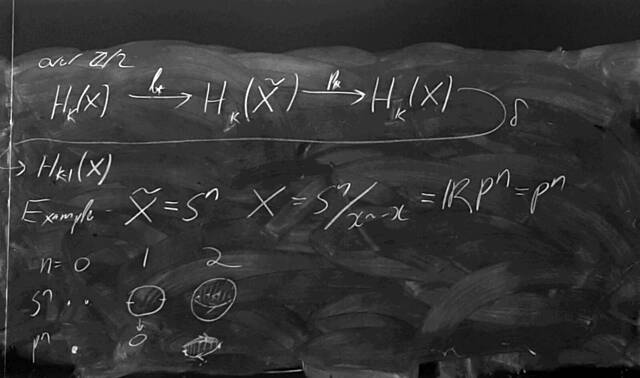 over Z/2
H_k(X) → t_* H_k(X̃) → p_* H_k(X) δ
→ H_{k-1}(X)
Example X̃ = Sⁿ X = Sⁿ/x~-x = ℝPⁿ = Pⁿ
n = 0 1 2
Sⁿ
Pⁿ